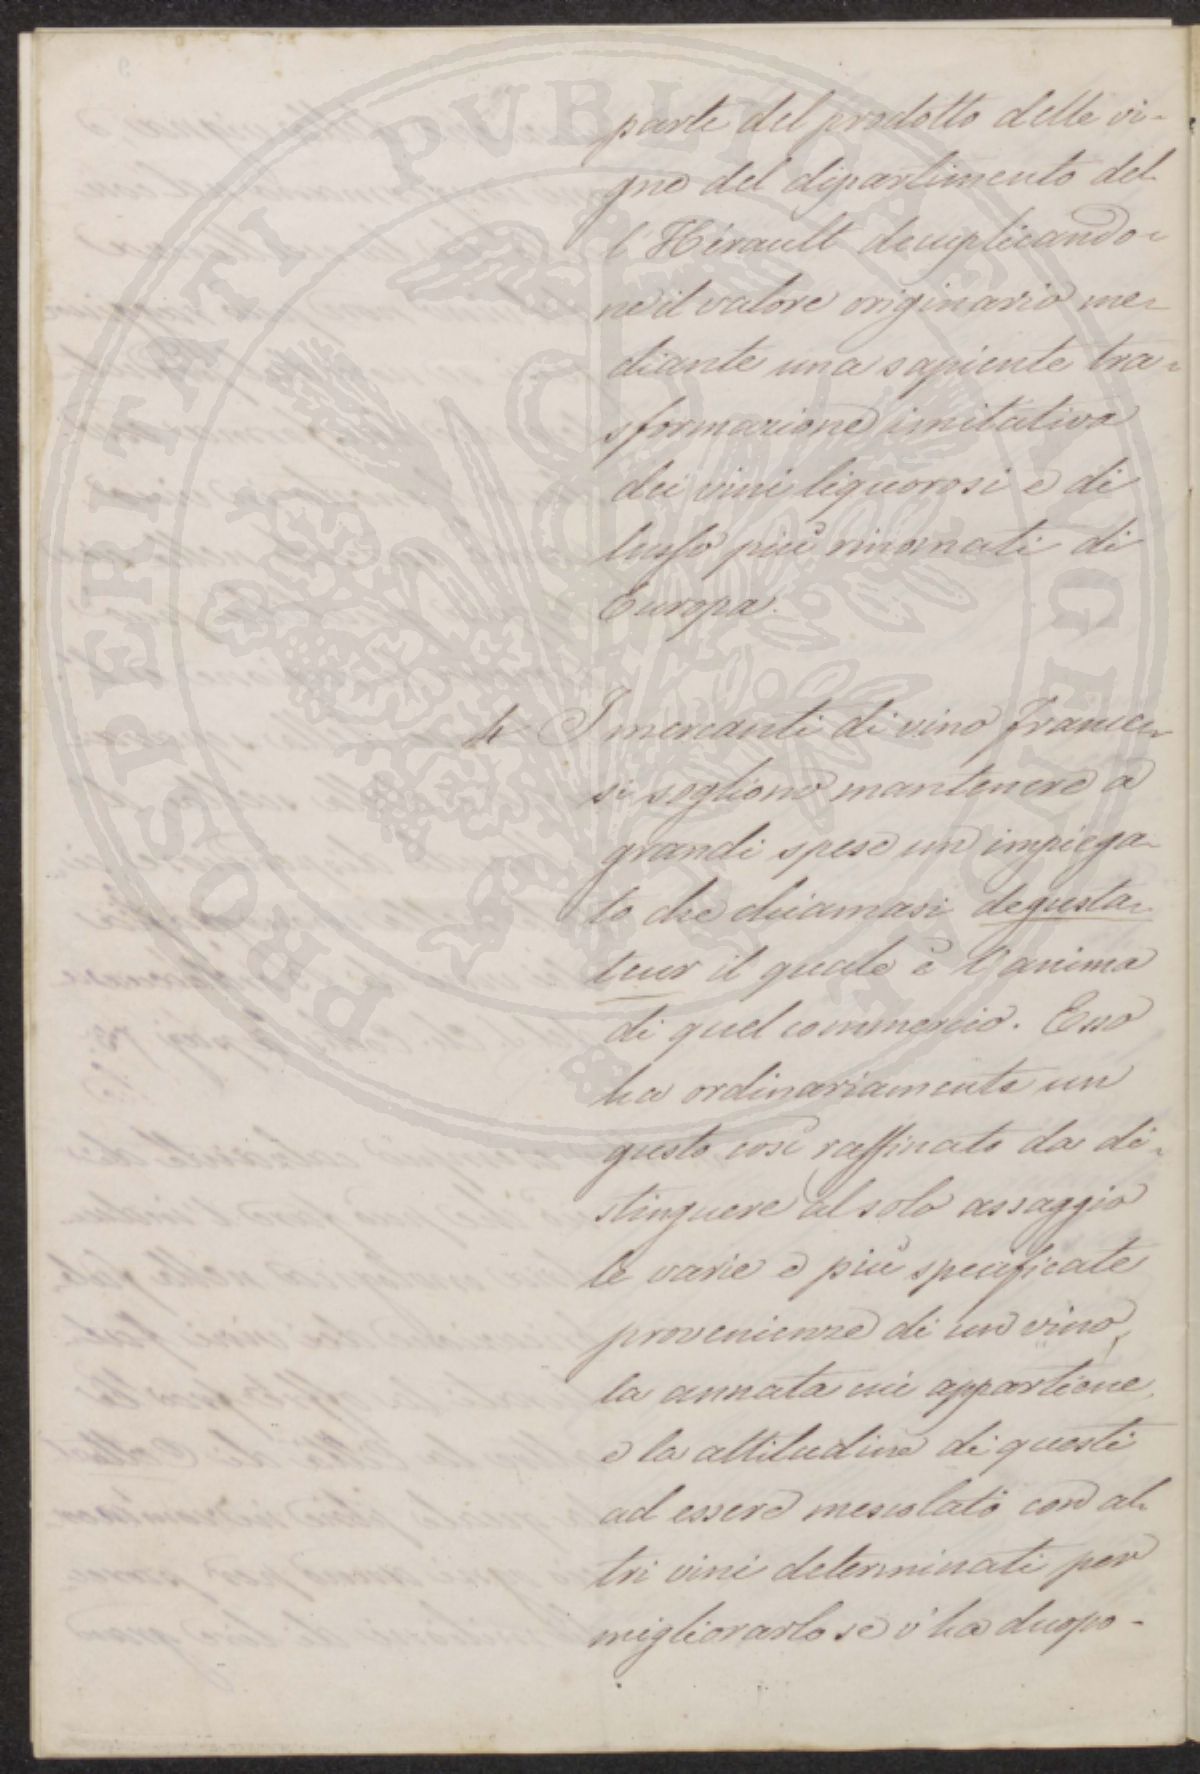 parte del prodotto delle vi-
gne del dipartimento del-
l'Hérault decuplicando-
ne il valore originario me-
diante una sapiente tra-
sformazione imitativa
dei vini liquorosi e di
lusso più rinomati di
Europa.
4 I mercanti di vino france-
si sogliono mantenere a
grandi spese un impiega-
to che chiamasi degusta-
teur il quale è l'anima
di quel commercio. Esso
ha ordinariamente un
gusto così raffinato da di-
stinguere al solo assaggio
le varie e più specificate
provenienze di un vino,
la annata cui appartiene,
e la attitudine di questi
ad essere mescolato con al-
tri vini determinati per
migliorarlo se v'ha duopo-
PROSPERITATI PVBLICAE AVGENDAE